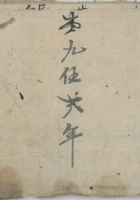 壹九伍六年